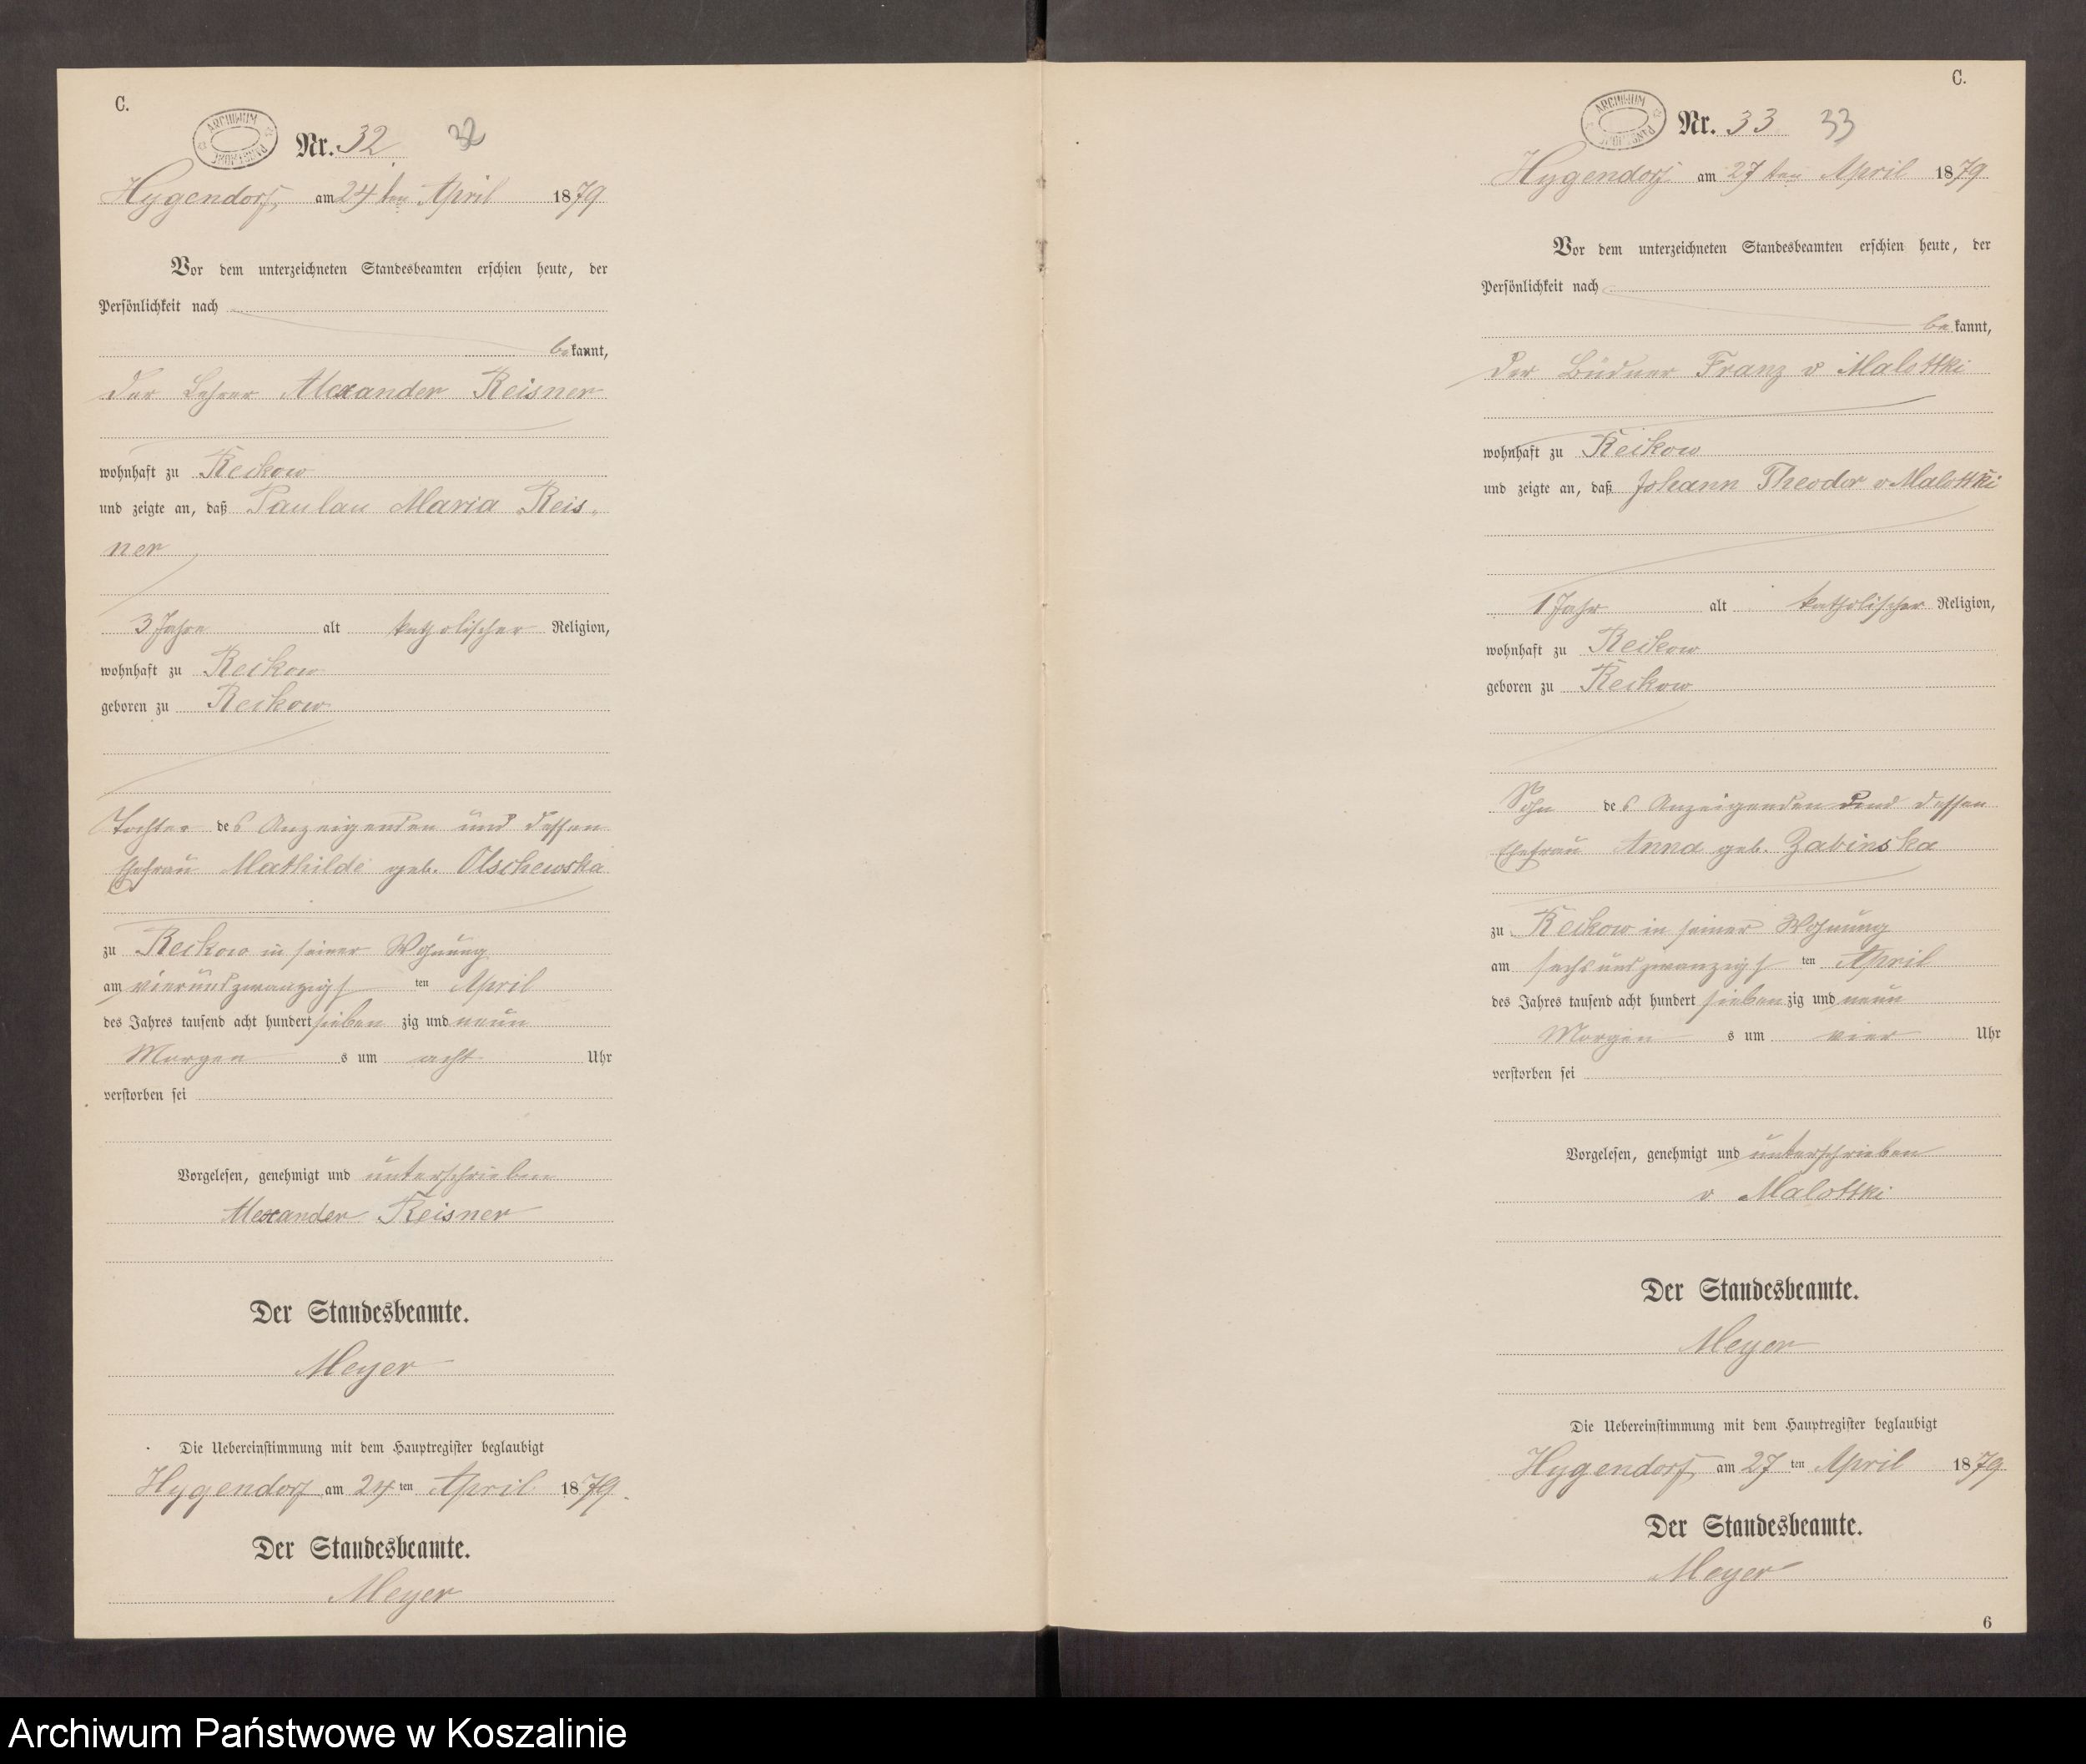 C.
ARCHIWUM PAŃSTWOWE
Nr. 32 32
Hygendorf, am 24 ten April 1879
Vor dem unterzeichneten Standesbeamten erschien heute, der
Persönlichkeit nach
bekannt,
der Lehrer Alexander Reisner
wohnhaft zu Reckow
und zeigte an, daß Paulau Maria Reis-
ner
3 Jahre alt katholischer Religion,
wohnhaft zu Reckow
geboren zu Reckow
Tochter des Anzeigenden und dessen
Ehefrau Mathilde geb. Olschewska
zu Reckow in seiner Wohnung
am vierundzwanzigsten April
des Jahres tausend acht hundert siebenzig und neun
Morgens um acht Uhr
verstorben sei
Vorgelesen, genehmigt und unterschrieben
Alexander Reisner
Der Standesbeamte.
Meyer
Die Uebereinstimmung mit dem Hauptregister beglaubigt
Hygendorf am 24 ten April 1879.
Der Standesbeamte.
Meyer
C.
ARCHIWUM PAŃSTWOWE
Nr. 33 33
Hygendorf am 27 ten April 1879
Vor dem unterzeichneten Standesbeamten erschien heute, der
Persönlichkeit nach
bekannt,
der Büdner Franz v Malottki
wohnhaft zu Reckow
und zeigte an, daß Johann Theodor v Malottki
1 Jahr alt katholischer Religion,
wohnhaft zu Reckow
geboren zu Reckow
Sohn des Anzeigenden und dessen
Ehefrau Anna geb. Zabinska
zu Reckow in seiner Wohnung
am sechsundzwanzigsten April
des Jahres tausend acht hundert siebenzig und neun
Morgens um vier Uhr
verstorben sei
Vorgelesen, genehmigt und unterschrieben
v. Malottki
Der Standesbeamte.
Meyer
Die Uebereinstimmung mit dem Hauptregister beglaubigt
Hygendorf, am 27 ten April 1879
Der Standesbeamte.
Meyer
6
Archiwum Państwowe w Koszalinie